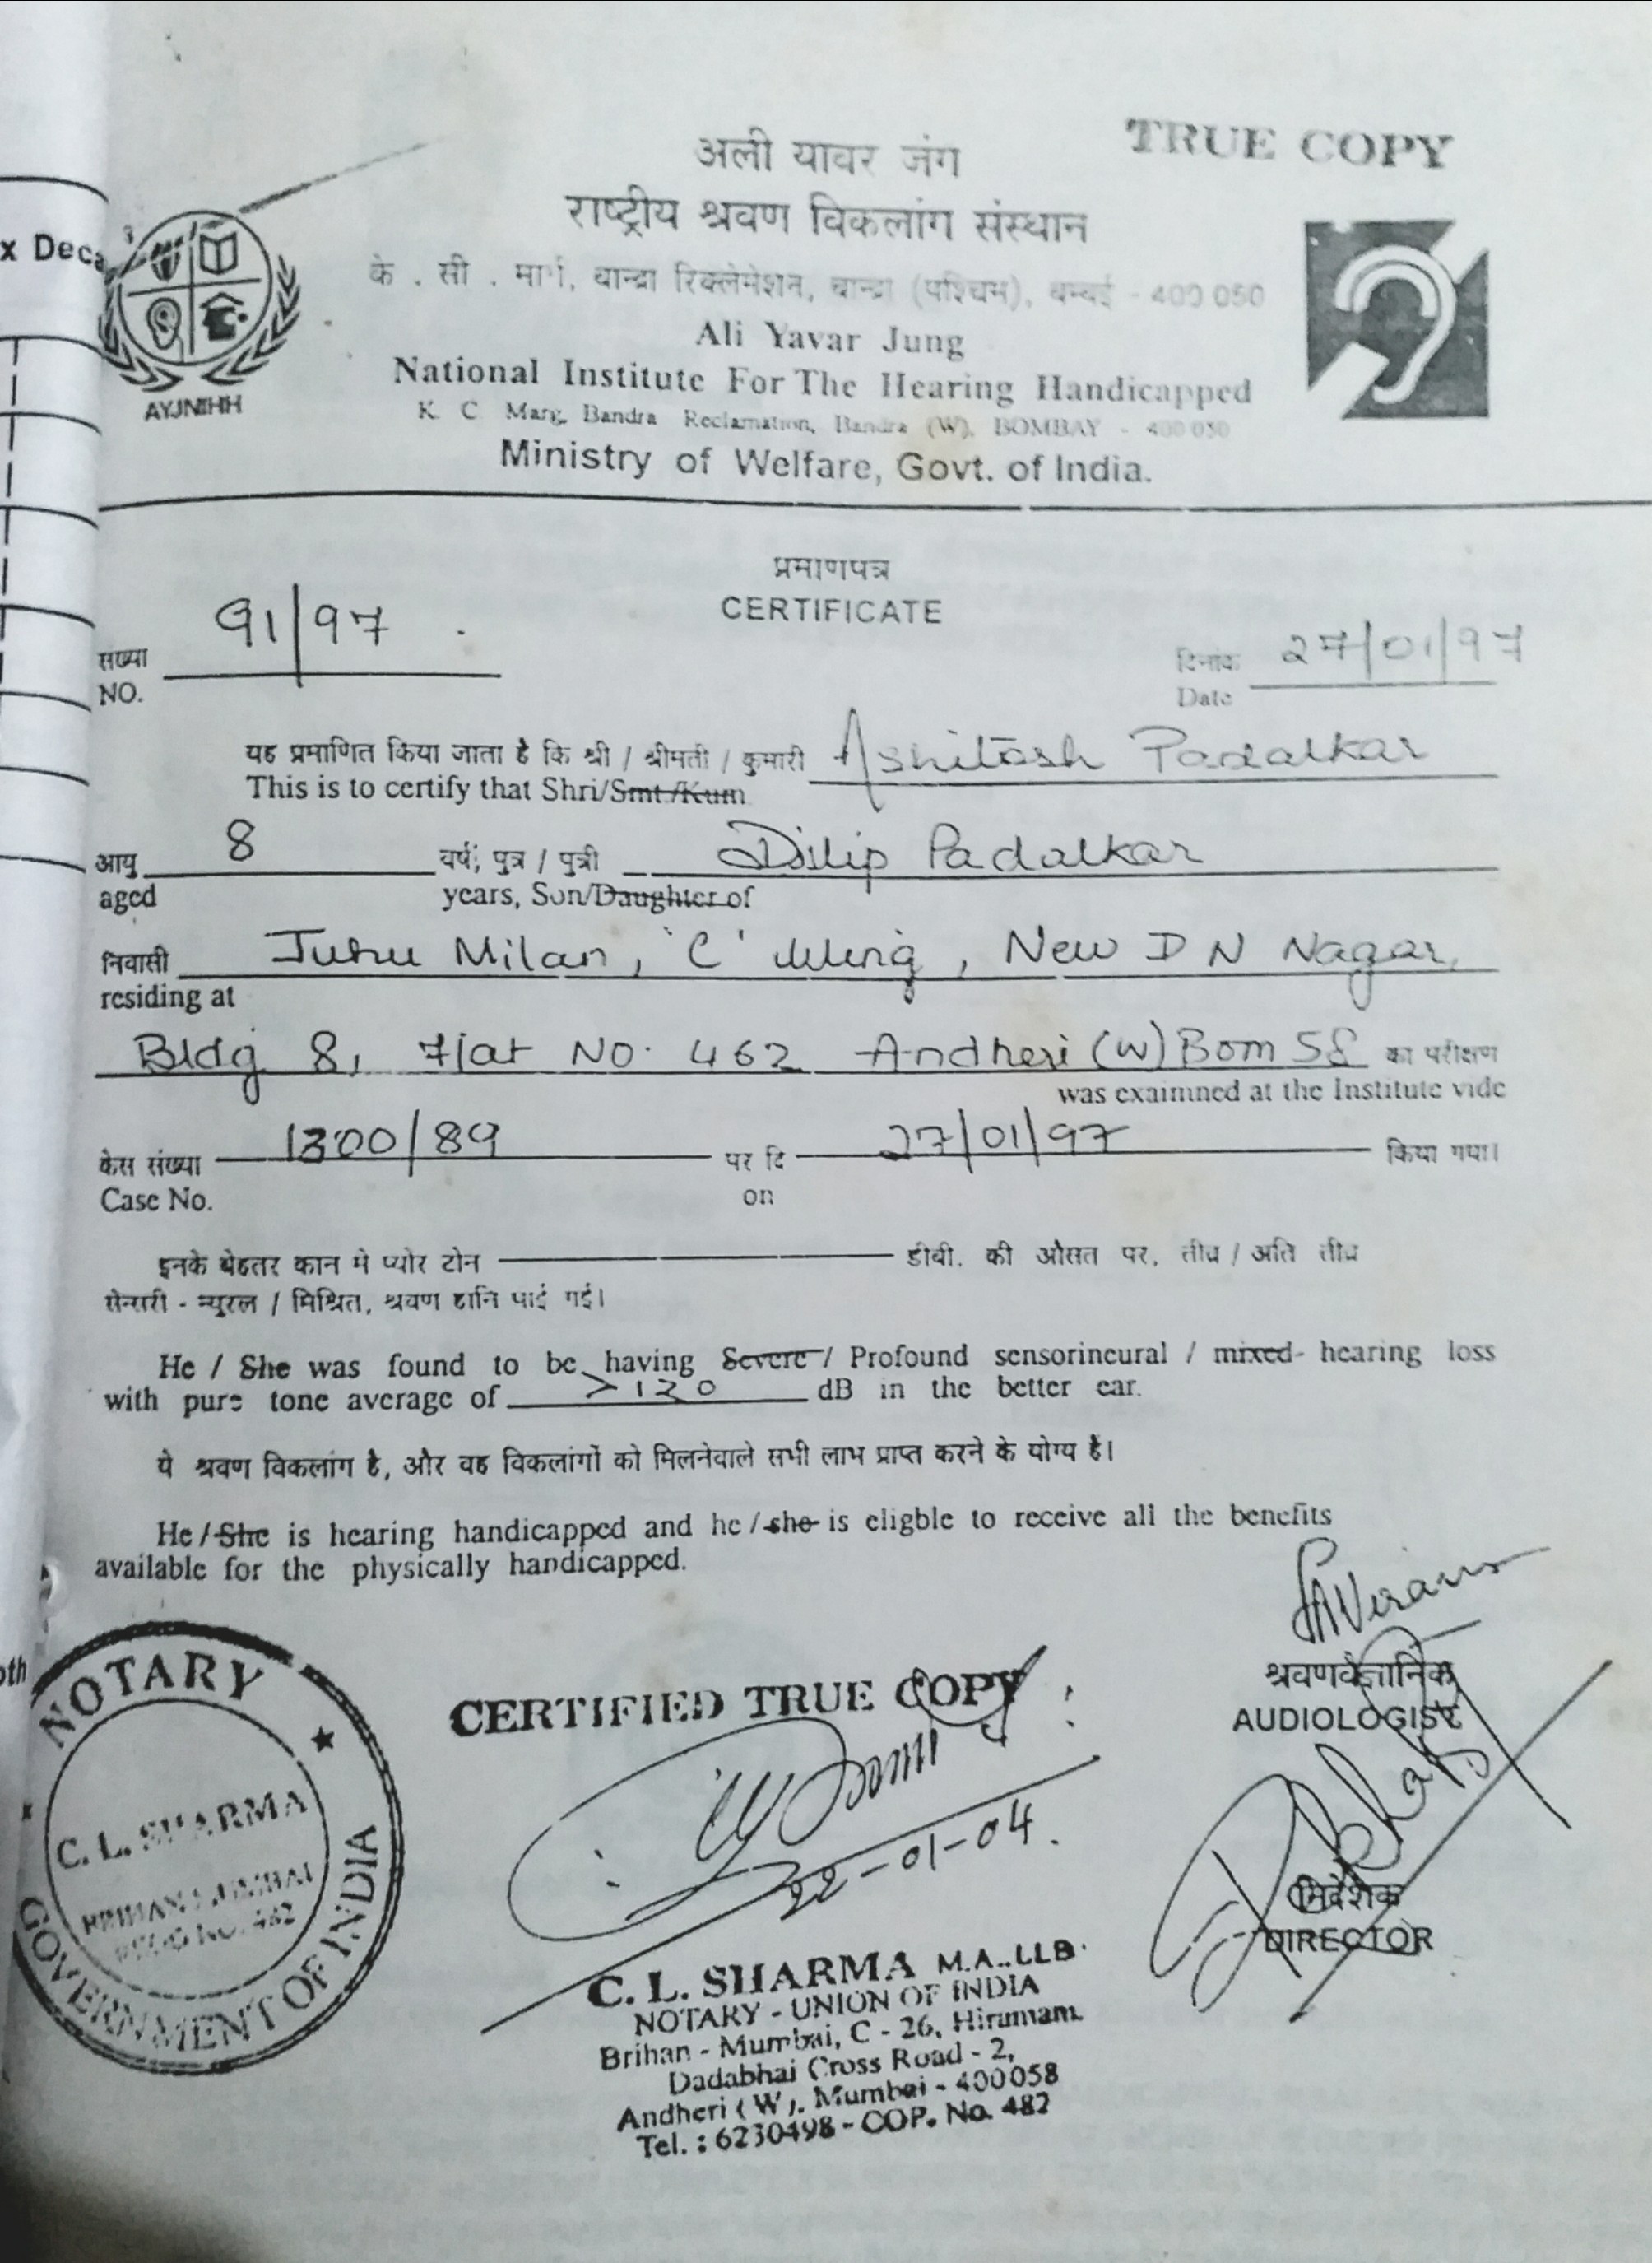 TRUE COPY
अली यावर जंग
राष्ट्रीय श्रवण विकलांग संस्थान
के . सी . मार्ग, बान्द्रा रिक्लेमेशन, बान्द्रा (पश्चिम), बम्बई - 400 050
Ali Yavar Jung
National Institute For The Hearing Handicapped
K. C Marg, Bandra Reclamation, Bandra (W), BOMBAY - 400 050
Ministry of Welfare, Govt. of India.
AYJNIHH
x Deca
प्रमाणपत्र
CERTIFICATE
संख्या 91/97
NO.
दिनांक 27/01/97
Date
यह प्रमाणित किया जाता है कि श्री / श्रीमती / कुमारी Ashitosh Padalkar
This is to certify that Shri/Smt./Kum
आयु 8 वर्ष; पुत्र / पुत्री Dilip Padalkar
aged years, Son/Daughter of
निवासी Juhu Milan, 'C' Wing, New D N Nagar,
residing at
Bldg 8, Flat No. 462 Andheri (W) Bom 58 का परीक्षण
was exaimned at the Institute vide
केस संख्या 1300/89 पर दि 27/01/97 किया गया।
Case No. on
इनके बेहतर कान मे प्योर टोन डीबी. की औसत पर, तीव्र / अति तीव्र
सेन्सरी - न्युरल / मिश्रित, श्रवण हानि पाई गई।
He / She was found to be having Severe / Profound sensorineural / mixed hearing loss
with pure tone average of >120 dB in the better ear.
ये श्रवण विकलांग है, और वह विकलांगों को मिलनेवाले सभी लाभ प्राप्त करने के योग्य है।
He / She is hearing handicapped and he / she is eligble to receive all the benefits
available for the physically handicapped.
श्रवणवैज्ञानिक
AUDIOLOGIST
निदेशक
DIRECTOR
CERTIFIED TRUE COPY
22-01-04.
C. L. SHARMA M.A..LLB.
NOTARY - UNION OF INDIA
Brihan - Mumbai, C - 26,
Dadabhai Cross Road - 2,
Andheri (W), Mumbai - 400058
Tel. : 6230498 - COP. No. 482
NOTARY
C. L. SHARMA
BRIHAN MUMBAI
REGD NO. 482
GOVERNMENT OF INDIA